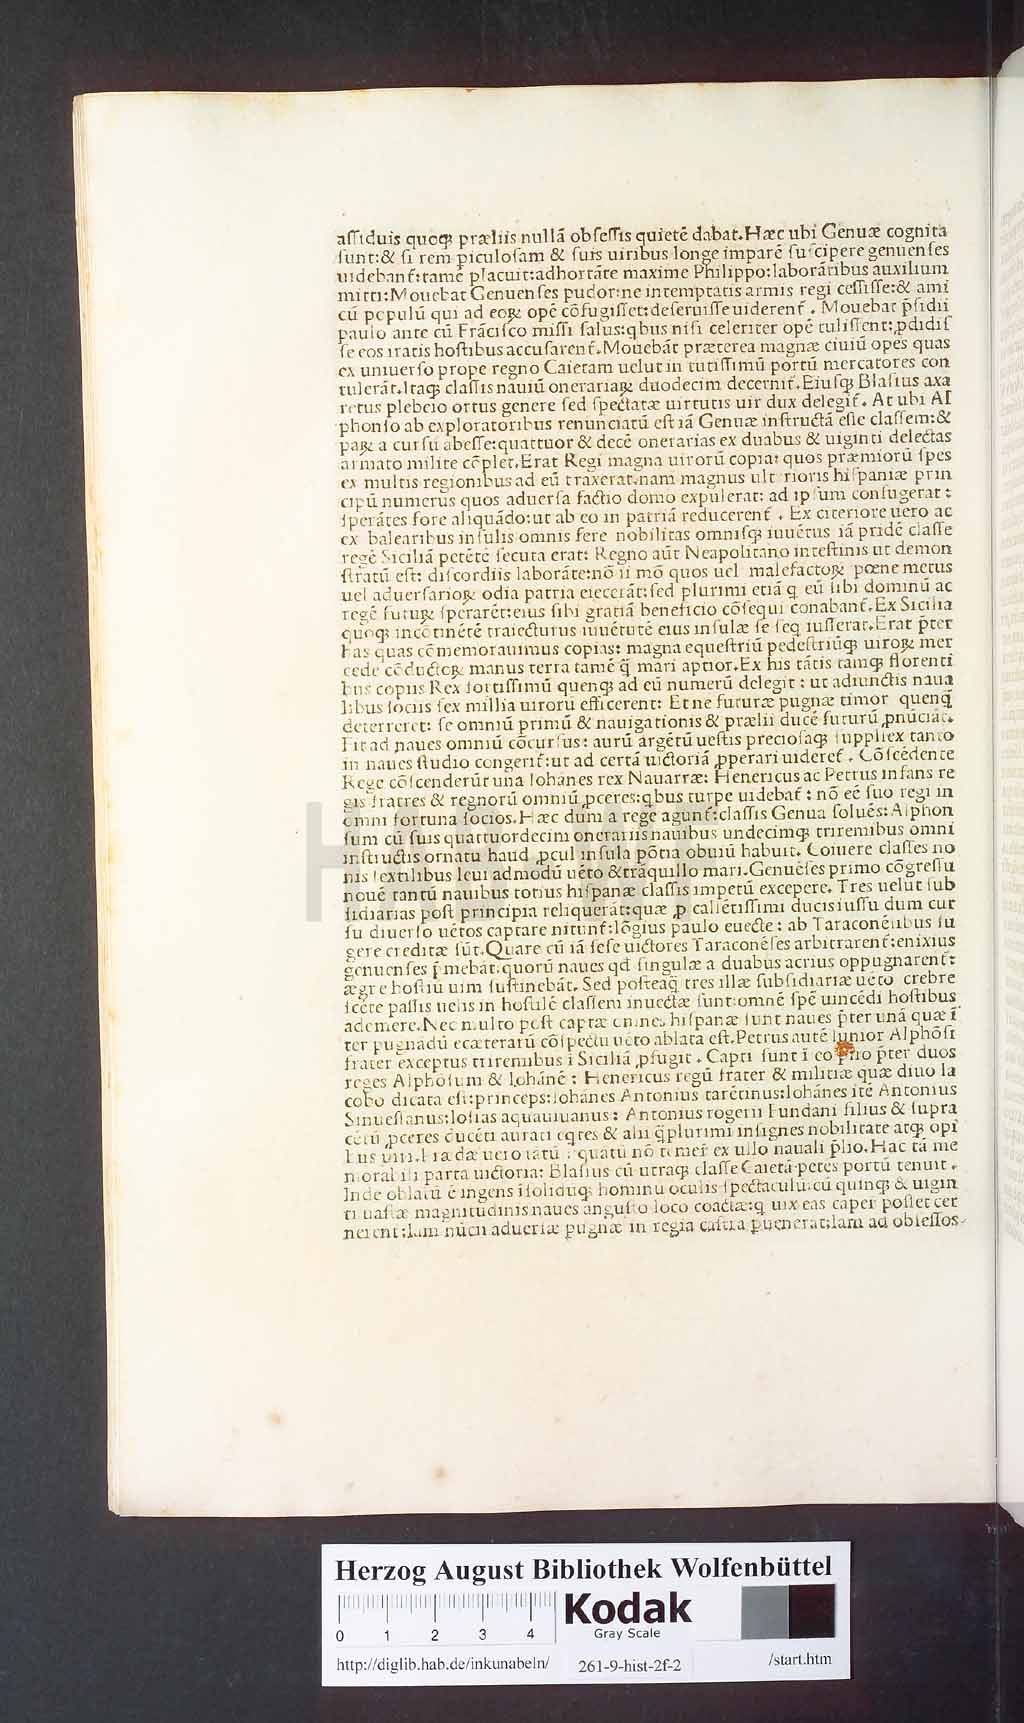 aſſiduis quoqꝫ præliis nullā obſeſſis quietē dabat.Hæc ubi Genuæ cognita
ſunt:& ſi rem ꝑiculoſam & ſuis uiribus longe imparē ſuſcipere genuenſes
uidebant᷑:tamē placuit:adhortāte maxime Philippo:laborātibus auxilium
mitti:Mouebat Genuenſes pudor:ne intemptatis armis regi ceſſiſſe:& ami
cū populū qui ad eoꝝ opē cōfugiſſet:deſeruiſſe uiderent᷑. Mouebat p̄ſidii
paulo ante cū Frāciſco miſſi ſalus:qbus niſi celeriter opē tuliſſent:ꝓdidiſ
ſe eos iratis hoſtibus accuſarent᷑.Mouebāt præterea magnæ ciuiū opes quas
ex uniuerſo prope regno Caietam uelut in tutiſſimū portū mercatores con
tulerāt.Itaqꝫ claſſis nauiū onerariaꝝ duodecim decernit᷑.Eiuſqꝫ Blaſius axa
retus plebeio ortus genere ſed ſpectatæ uirtutis uir dux delegit᷑. At ubi Al
phonſo ab exploratoribus renunciatū eſt iā Genuæ inſtructā eſſe claſſem:&
paꝝ a curſu abeſſe:quattuor & decē onerarias ex duabus & uiginti delectas
armato milite cōplet.Erat Regi magna uirorū copia: quos præmiorū ſpes
ex multis regionibus ad eū traxerat.nam magnus ulterioris hiſpaniæ prin
cipū numerus quos aduerſa factio domo expulerat: ad ipſum confugerat:
ſperātes fore aliquādo:ut ab eo in patriā reducerent᷑. Ex citeriore uero ac
ex balearibus inſulis omnis fere nobilitas omniſqꝫ iuuētus iā pridē claſſe
regē Siciliā petētē ſecuta erat: Regno aūt Neapolitano inteſtinis ut demon
ſtratū eſt: diſcordiis laborāte:nō ii mō quos uel malefactoꝝ pœne metus
uel aduerſarioꝝ odia patria eiecerāt:ſed plurimi etiā q eū ſibi dominū ac
regē futuꝝ ſperarēt:eius ſibi gratiā beneficio cōſequi conabant᷑.Ex Sicilia
quoqꝫ incōtinētē traiecturus iuuētutē eius inſulæ ſe ſeq iuſſerat.Erat p̄ter
has quas cōmemorauimus copias: magna equeſtriū pedeſtriūqꝫ uiroꝝ mer
cede cōductoꝝ manus terra tamē q̄ mari aptior.Ex his tātis tamqꝫ florenti
bus copiis Rex fortiſſimū quenqꝫ ad eū numerū delegit: ut adiunctis naua
libus ſociis ſex millia uirorū efficerent: Et ne futuræ pugnæ timor quenq̄
deterreret: ſe omniū primū & nauigationis & prælii ducē futurū ꝓnūciat.
Fit ad naues omniū cōcurſus: aurū argētū ueſtis precioſaqꝫ ſuppllex tanto
in naues ſtudio congerit᷑:ut ad certā uictoriā ꝓperari uideret᷑. Cōſcēdente
Rege cōſcenderūt una Iohānes rex Nauarræ: Henericus ac Petrus infans re
gis fratres & regnorū omniū ꝓceres:qbus turpe uidebat᷑: nō eē ſuo regi in
omni fortuna ſocios.Hæc dum a rege agunt᷑:claſſis Genua ſoluēs:Alphon
ſum cū ſuis quattuordecim onerariis nauibus undecimqꝫ triremibus omni
inſtructis ornatu haud ꝓcul inſula pōtia obuiū habuit. Coiuere claſſes no
nis ſextilibus leui admodū uēto &trāquillo mari.Genuēſes primo cōgreſſu
nouē tantū nauibus totius hiſpanæ claſſis impetū excepere. Tres uelut ſub
ſidiarias poſt principia reliquerāt:quæ ꝓ caliētiſſimi ducis iuſſu dum cur
ſu diuerſo uētos captare nitunt᷑:lōgius paulo euecte: ab Taraconēſibus fu
gere creditæ ſūt.Quare cū iā ſeſe uictores Taraconēſes arbitrarent᷑:enixius
genuenſes p̄mebāt.quorū naues qd ſingulæ a duabus acrius oppugnarent᷑:
ægre hoſtiū uim ſuſtinebāt. Sed poſteaq̄ tres illæ ſubſidiariæ uēto crebre
ſcēte paſſis uelis in hoſtilē claſſem inuectæ ſunt:omnē ſpē uincēdi hoſtibus
ademere.Nec multo poſt captæ omnes hiſpanæ ſunt naues p̄ter unā quæ ī
ter pugnādū ecæterarū cōſpectu uēto ablata eſt.Petrus autē Iunior Alphōſi
frater exceptus triremibus ī Siciliā ꝓfugit. Capti ſunt ī eo p̄lio p̄ter duos
reges Alphōſum & Iohānē: Henericus regū frater & militiæ quæ diuo Ia
cobo dicata eſt:princeps:Iohānes Antonius tarētinus:Iohānes itē Antonius
Sinueſſanus:Ioſias aquauiuanus: Antonius rogerii Fundani filius & ſupra
cētū ꝓceres ducēti aurati eqtes & alii q̄plurimi inſignes nobilitate atqꝫ opi
bus uiri.Prædæ uero tātū: quātū nō temer᷑ ex ullo nauali p̄lio.Hac tā me
morabili parta uictoria: Blaſius cū utraqꝫ claſſe Caietā petēs portū tenuit.
Inde oblatū ē ingens iſolidūqꝫ hominū oculis ſpectaculū:cū quinqꝫ & uigin
ti uaſtæ magnitudinis naues anguſto loco coactæ:q uix eas caper poſſet cer
nerent᷑:Iam nūcii aduerſæ pugnæ in regia caſtra ꝑuenerāt:Iam ad obſeſſos
HAB AMT
Herzog August Bibliothek Wolfenbüttel
0 1 2 3 4
Kodak
Gray Scale
http://diglib.hab.de/inkunabeln/ 261-9-hist-2f-2 /start.htm